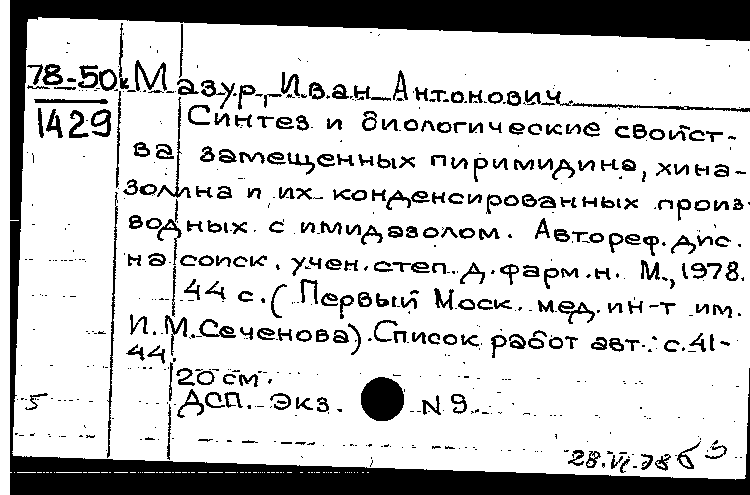 78-50к Мазур, Иван Антонович.
1429 Синтез и биологические свойст-
ва замещенных пиримидина, хина-
золина и их конденсированных произ
водных с имидазолом. Автореф. дис.
на соиск. учен. степ. д. фарм. н. М., 1978.
44 с. (Первый Моск. мед. ин-т им.
И. М. Сеченова). Список работ авт.: с. 41-
44.
20 см.
5 ДСП. Экз. N 9.
28.VI.78